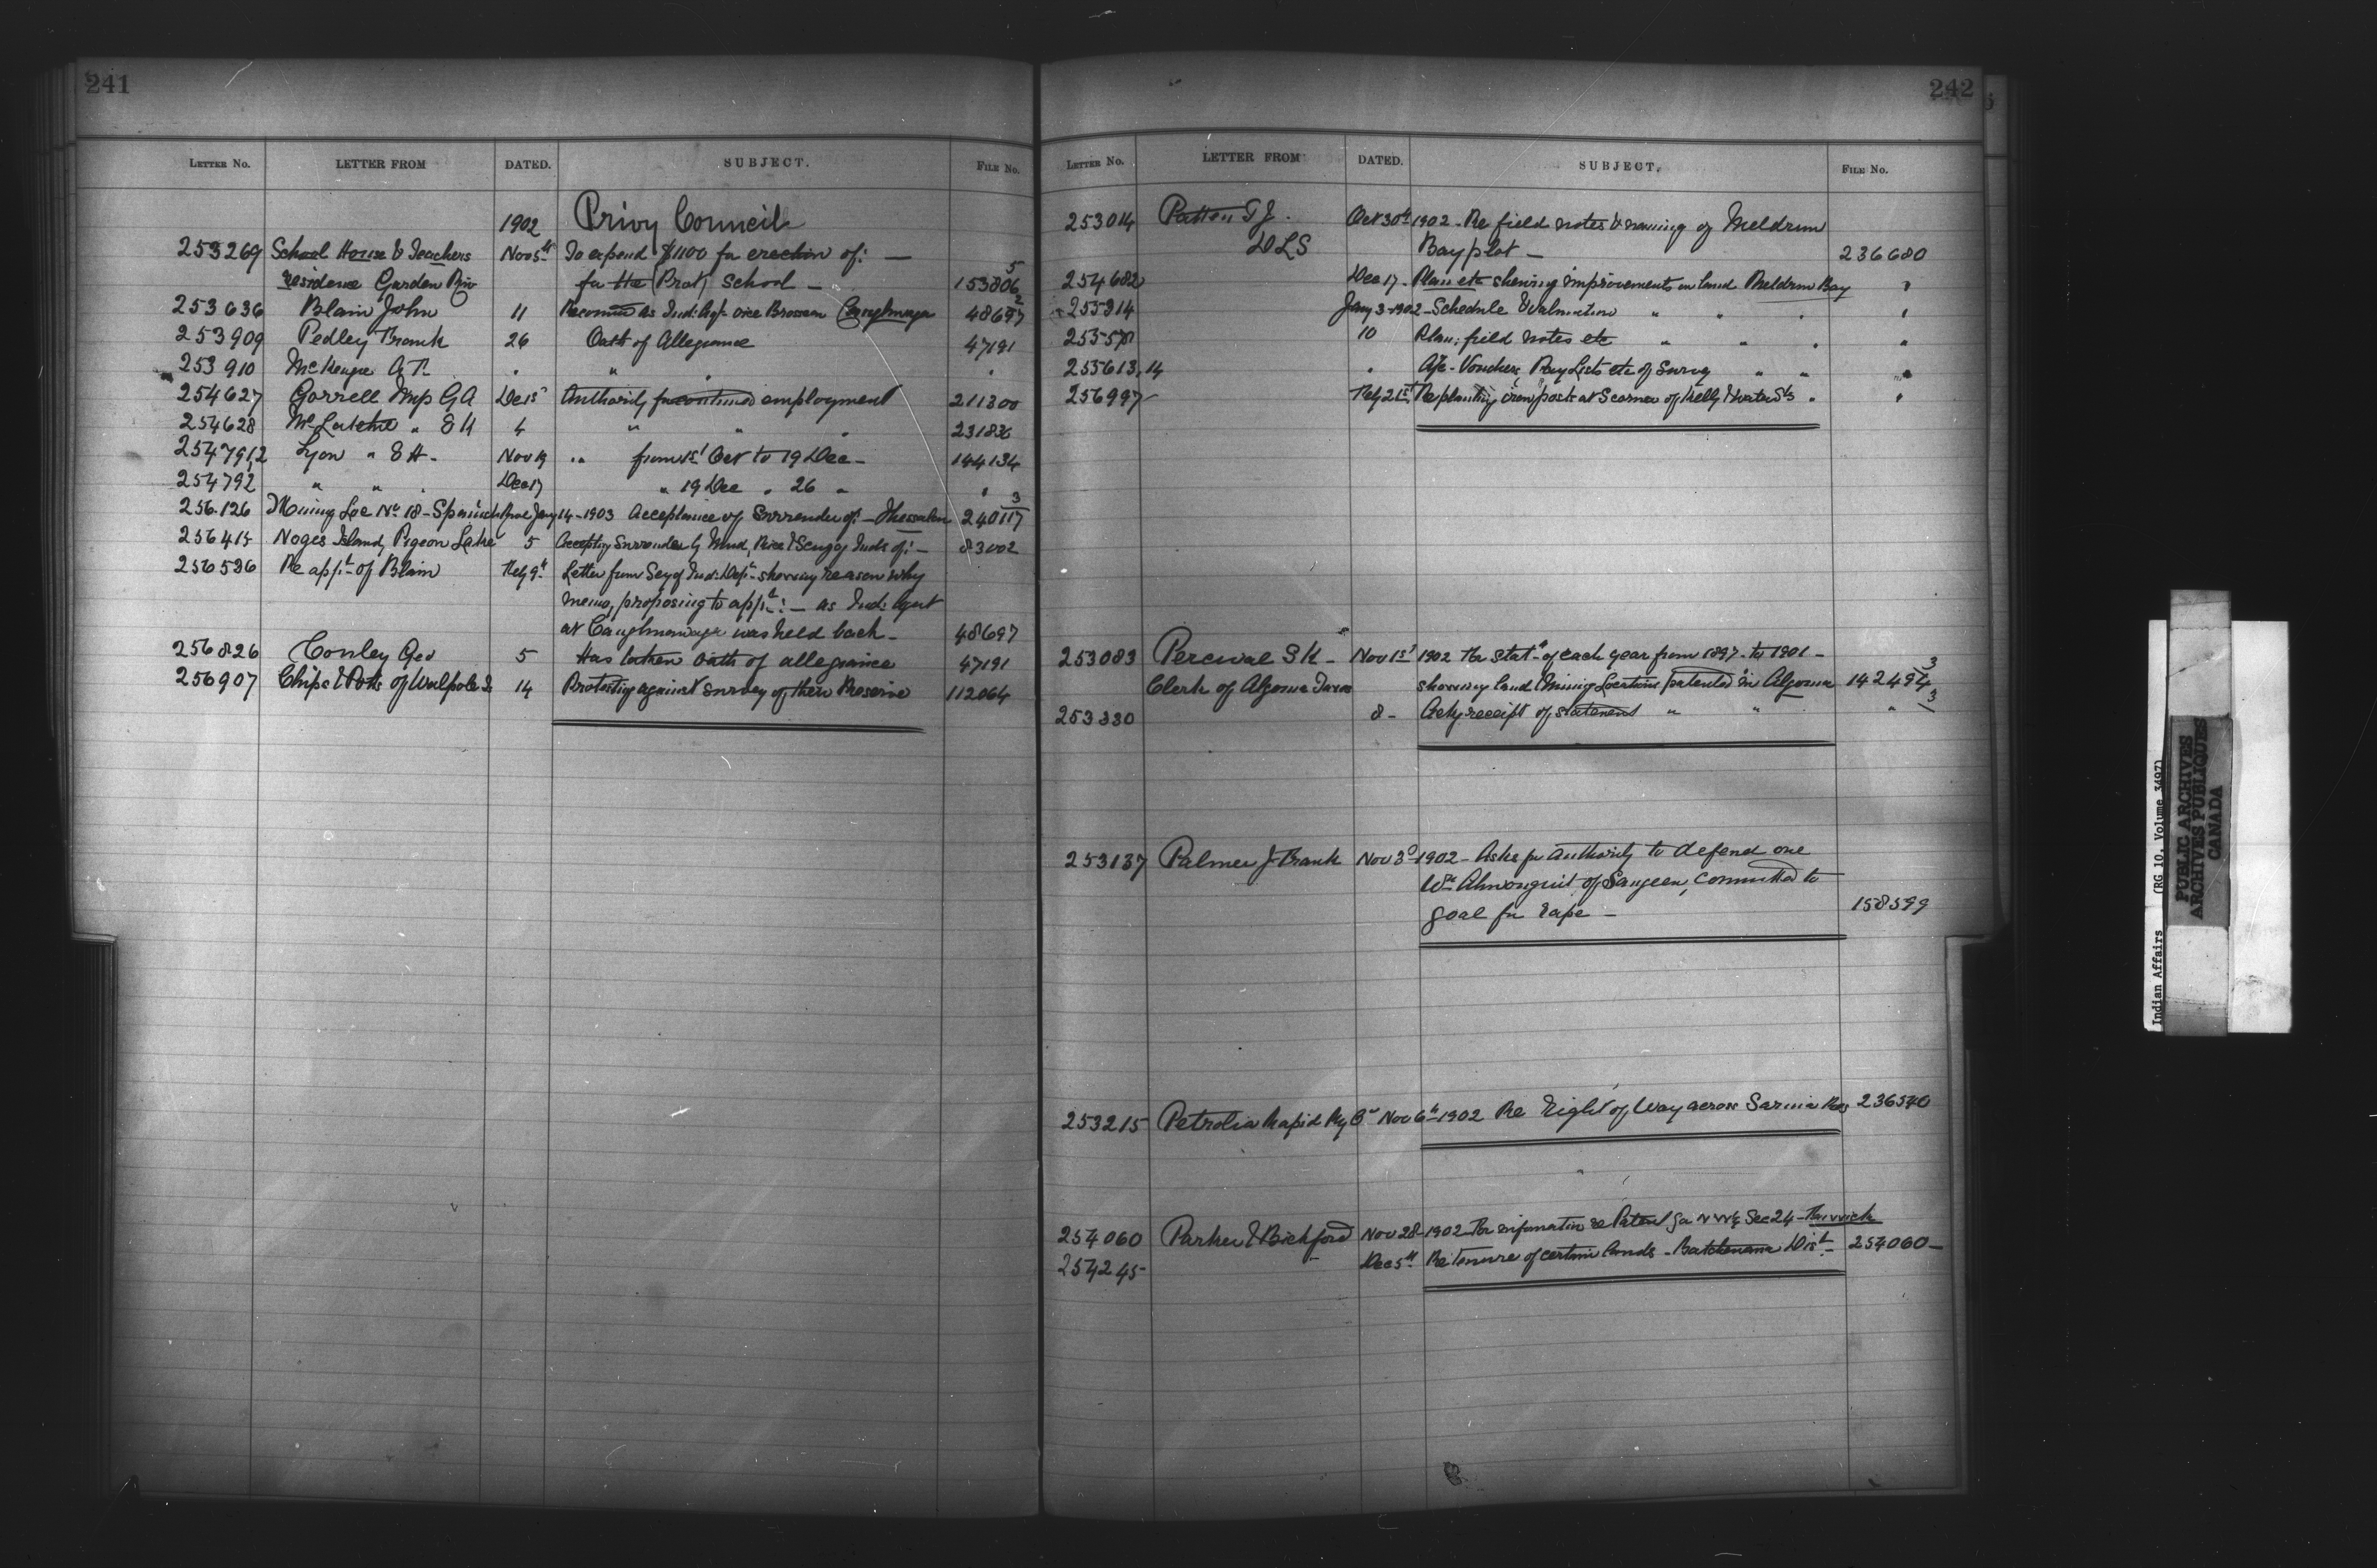 241
LETTER NO. LETTER FROM DATED. SUBJECT. FILE NO.
1902 Privy Council
253269 School House & Teachers Nov 5th To expend $1100 for erection of: —
residence Garden Riv for the Prot. School — 153806 5
253636 Blain John 11 Recommd as Ind: Agt. vice Brosseau Caughnawaga 48697 2
253909 Pedley Frank 26 Oath of Allegiance 47191
253910 McKenzie A. " " "
254627 Gorrell Mrs G A Dec 1st Authority for continued employment 211300
254628 McLatchie " 4 " " "
254791,2 Lyon " Nov 19 " from 1st Oct to 19 Dec — 144134
254792 " " Dec 17 " 19 Dec " 26 " "
256126 Mining Loc No 18 - Spanish River Jany 14 - 1903 Acceptance of Surrender of: — Thessalon 240117 3
256415 Noges Island, Pigeon Lake 5 Accepting Surrender by Mud, Rice & Scugog Inds of: — 83002
256586 Re appt of Blain Feby 9th Letter from Secy of Ind: Dept shewing reason why
memo, proposing to appt: — as Ind: Agent
at Caughnawaga was held back — 48697
256826 Conley Geo 5 Has taken oath of allegiance 47191
256907 Chips & Potts of Walpole Is 14 Protesting against survey of their Reserve 112064
242
LETTER NO. LETTER FROM DATED. SUBJECT. FILE NO.
253014 Patten T J. Oct 30th 1902 - Re field notes & naming of Meldrum
DLS Bay plot — 236680
254682 Dec 17 - Plan etc shewing improvements on land Meldrum Bay "
255314 Jany 3 - 1902 - Schedule & Valuation " " " "
10 Plan, field notes etc " " " "
255613,14 " A/c - Vouchers Pay Lists etc of Survey " " "
256997 Feby 21st Re planting iron post at S corner of Kelly & Water Sts " "
253083 Percival S K — Nov 1st 1902 For statt of each year from 1897 to 1901 —
Clerk of Algoma Taxes shewing land & Mining Locations patented in Algoma 142494 3
253330 8 - Ackg receipt of statement " " " 3
253137 Palmer J Frank Nov 3d 1902 - Asks for authority to defend one
Wm of Saugeen, committed to
goal for rape — 158599
253215 Petrolia Rapid Ry Co Nov 6th 1902 Re Right of Way across Sarnia Res 236540
254060 Parker & Bickford Nov 28 - 1902 For information re Patent for N W 1/4 Sec 24 -
254245 Dec 5th Re tenure of certain lands - Batchewana Dist — 254060 —
Indian Affairs (RG 10, Volume 3497)
PUBLIC ARCHIVES
ARCHIVES PUBLIQUES
CANADA